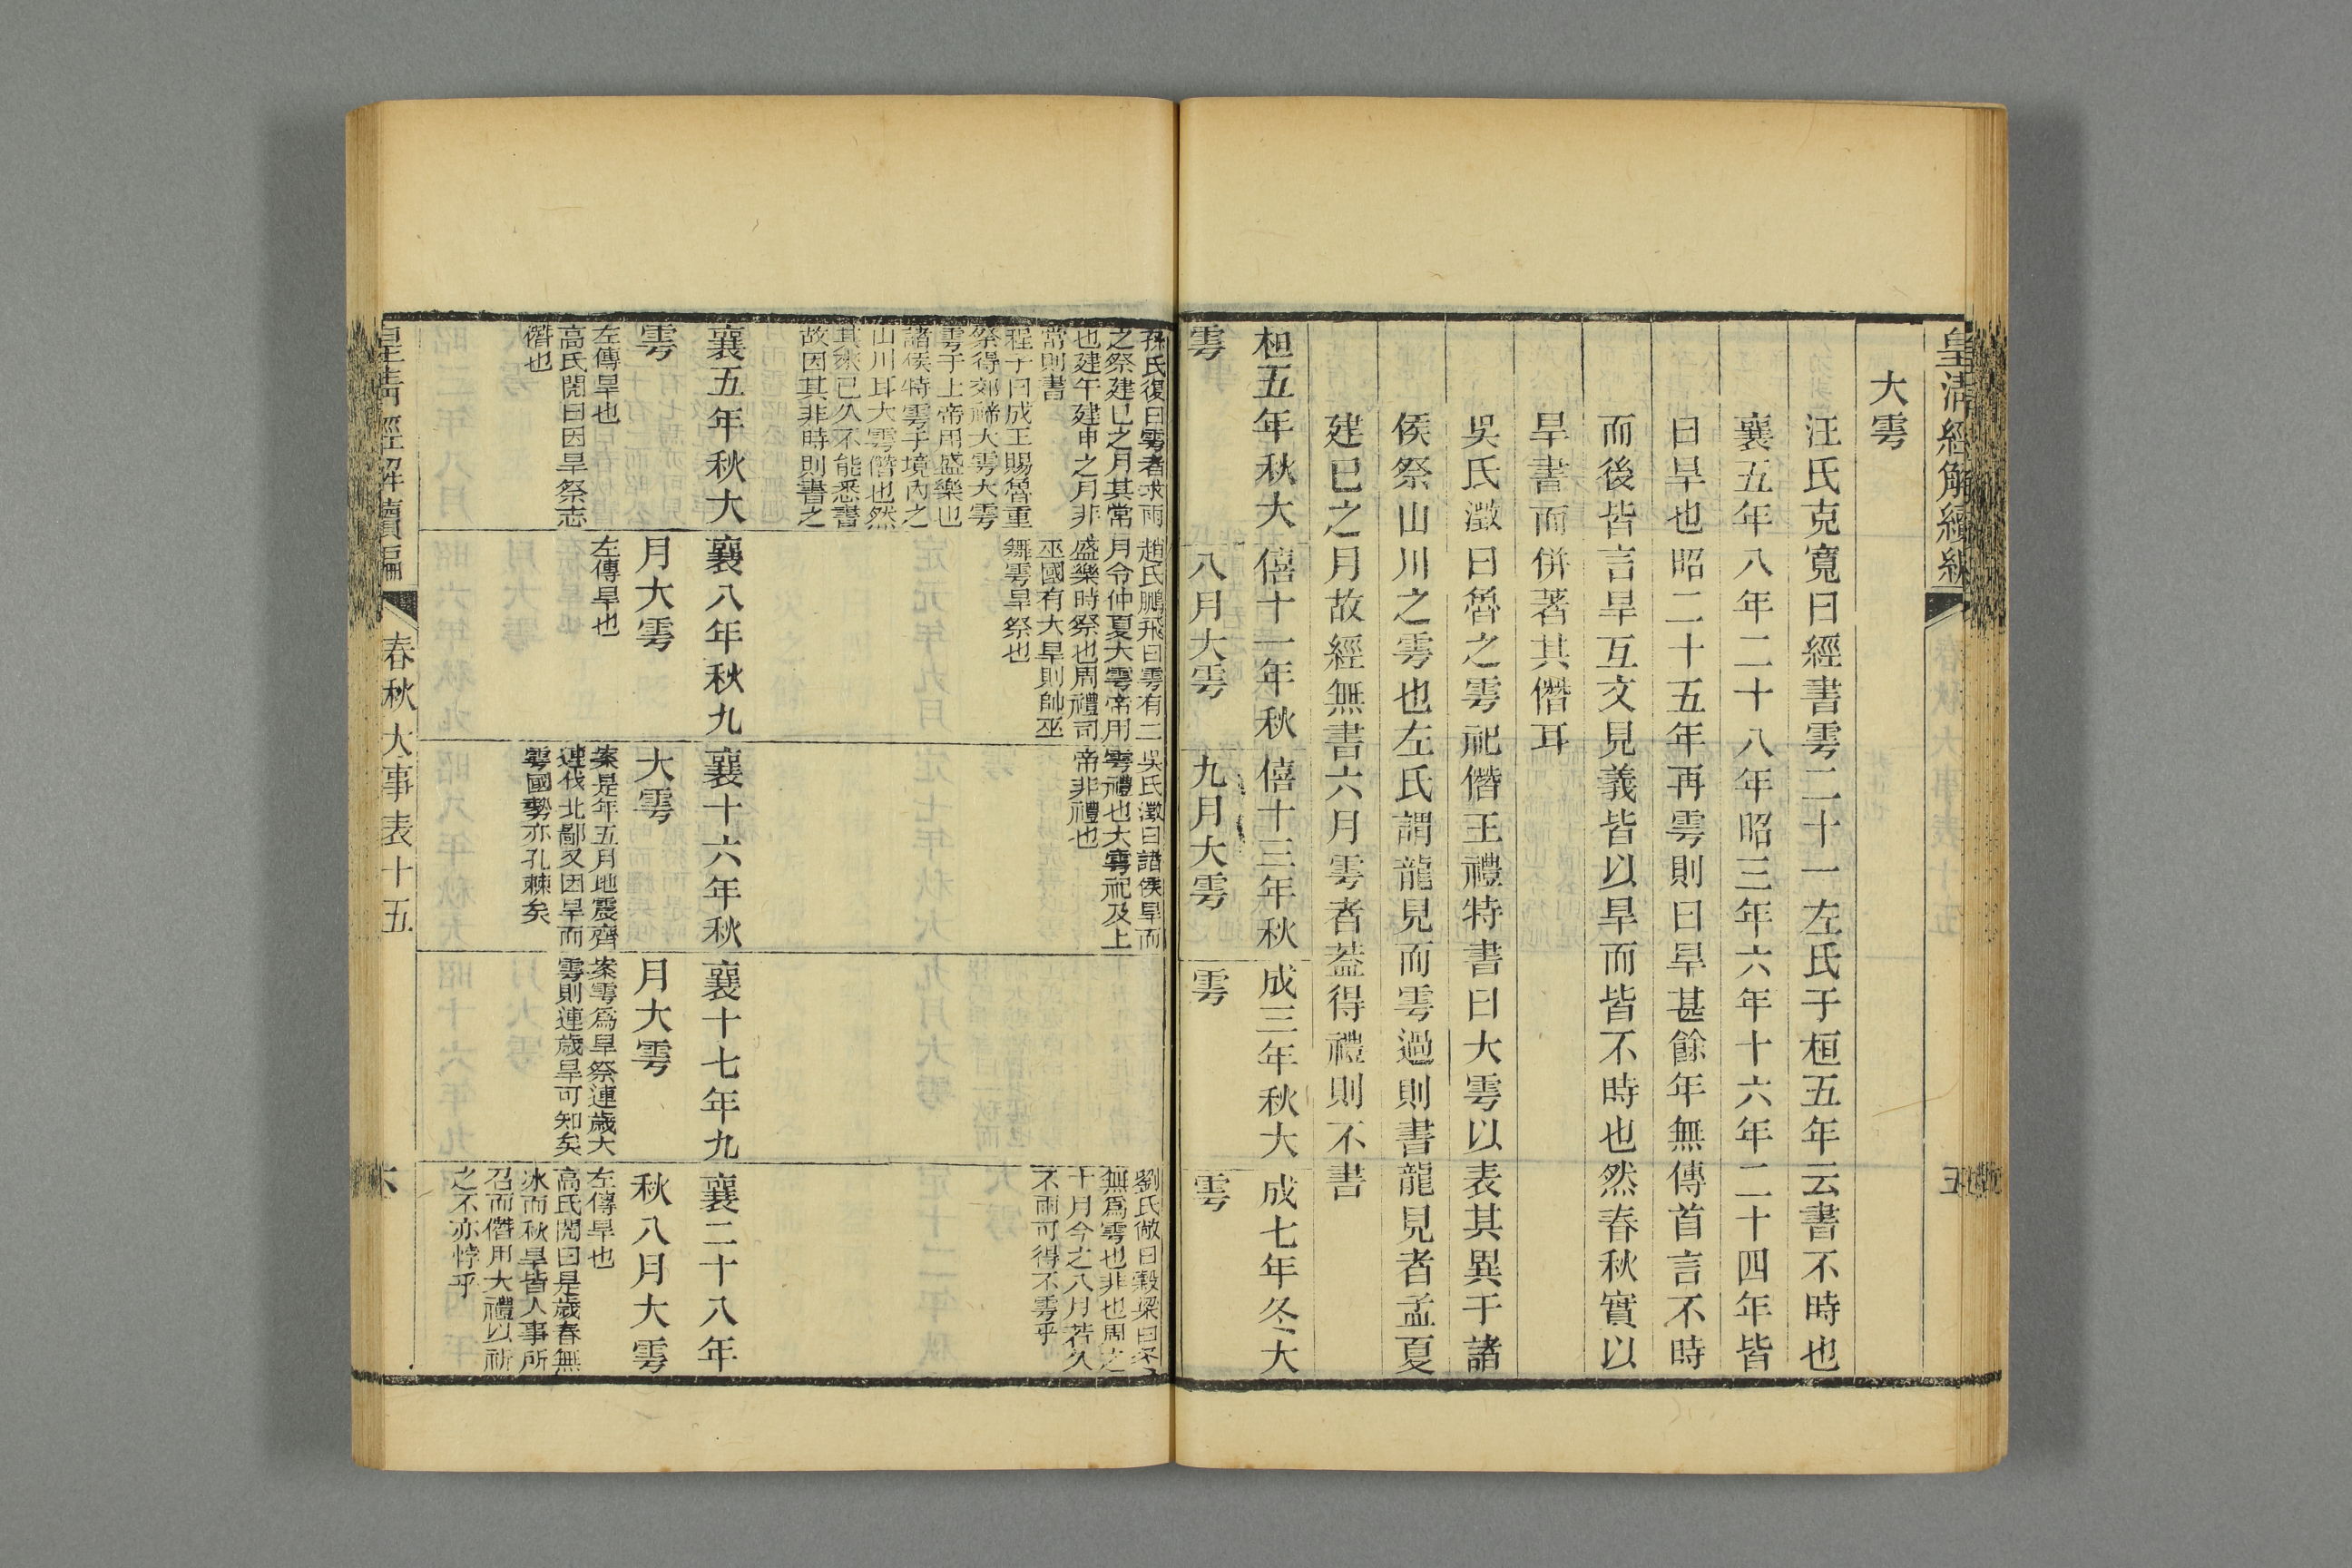 皇清經解續編
大雩
汪氏克寬曰經書雩二十一左氏于桓五年云書不時也
襄五年八年二十八年昭三年六年十六年二十四年皆
曰旱也昭二十五年再雩則曰旱甚餘年無傳首言不時
而後皆言旱互文見義皆以旱而皆不時也然春秋實以
旱書而併著其僭耳
吳氏澂曰魯之雩祀僭王禮特書曰大雩以表其異于諸
侯祭山川之雩也左氏謂龍見而雩過則書龍見者孟夏
建巳之月故經無書六月雩者葢得禮則不書
桓五年秋大
雩
僖十一年秋
八月大雩
僖十三年秋
九月大雩
成三年秋大
雩
成七年冬大
雩
孫氏復曰雩者求雨
之祭建巳之月其常
也建午建申之月非
常則書
程子曰成王賜魯重
祭得郊禘大雩大雩
雩于上帝用盛樂也
諸侯特雩于境內之
山川耳大雩僭也然
其來已久不能悉書
故因其非時則書之
趙氏鵬飛曰雩有二
月令仲夏大雩帝用
盛樂時祭也周禮司
巫國有大旱則帥巫
舞雩旱祭也
吳氏澂曰諸侯旱而
雩禮也大雩祀及上
帝非禮也
劉氏敞曰穀梁曰冬
無爲雩也非也周之
十月今之八月若久
不雨可得不雩乎
襄五年秋大
雩
左傳旱也
高氏閌曰因旱祭志
僭也
襄八年秋九
月大雩
左傳旱也
襄十六年秋
大雩
案是年五月地震齊
連伐北鄙又因旱而
雩國勢亦孔棘矣
襄十七年九
月大雩
案雩爲旱祭連歲大
雩則連歲旱可知矣
襄二十八年
秋八月大雩
左傳旱也
高氏閌曰是歲春無
冰而秋旱皆人事所
召而僭用大禮以祈
之不亦悖乎
皇淸經解續編
春秋大事表十五
六